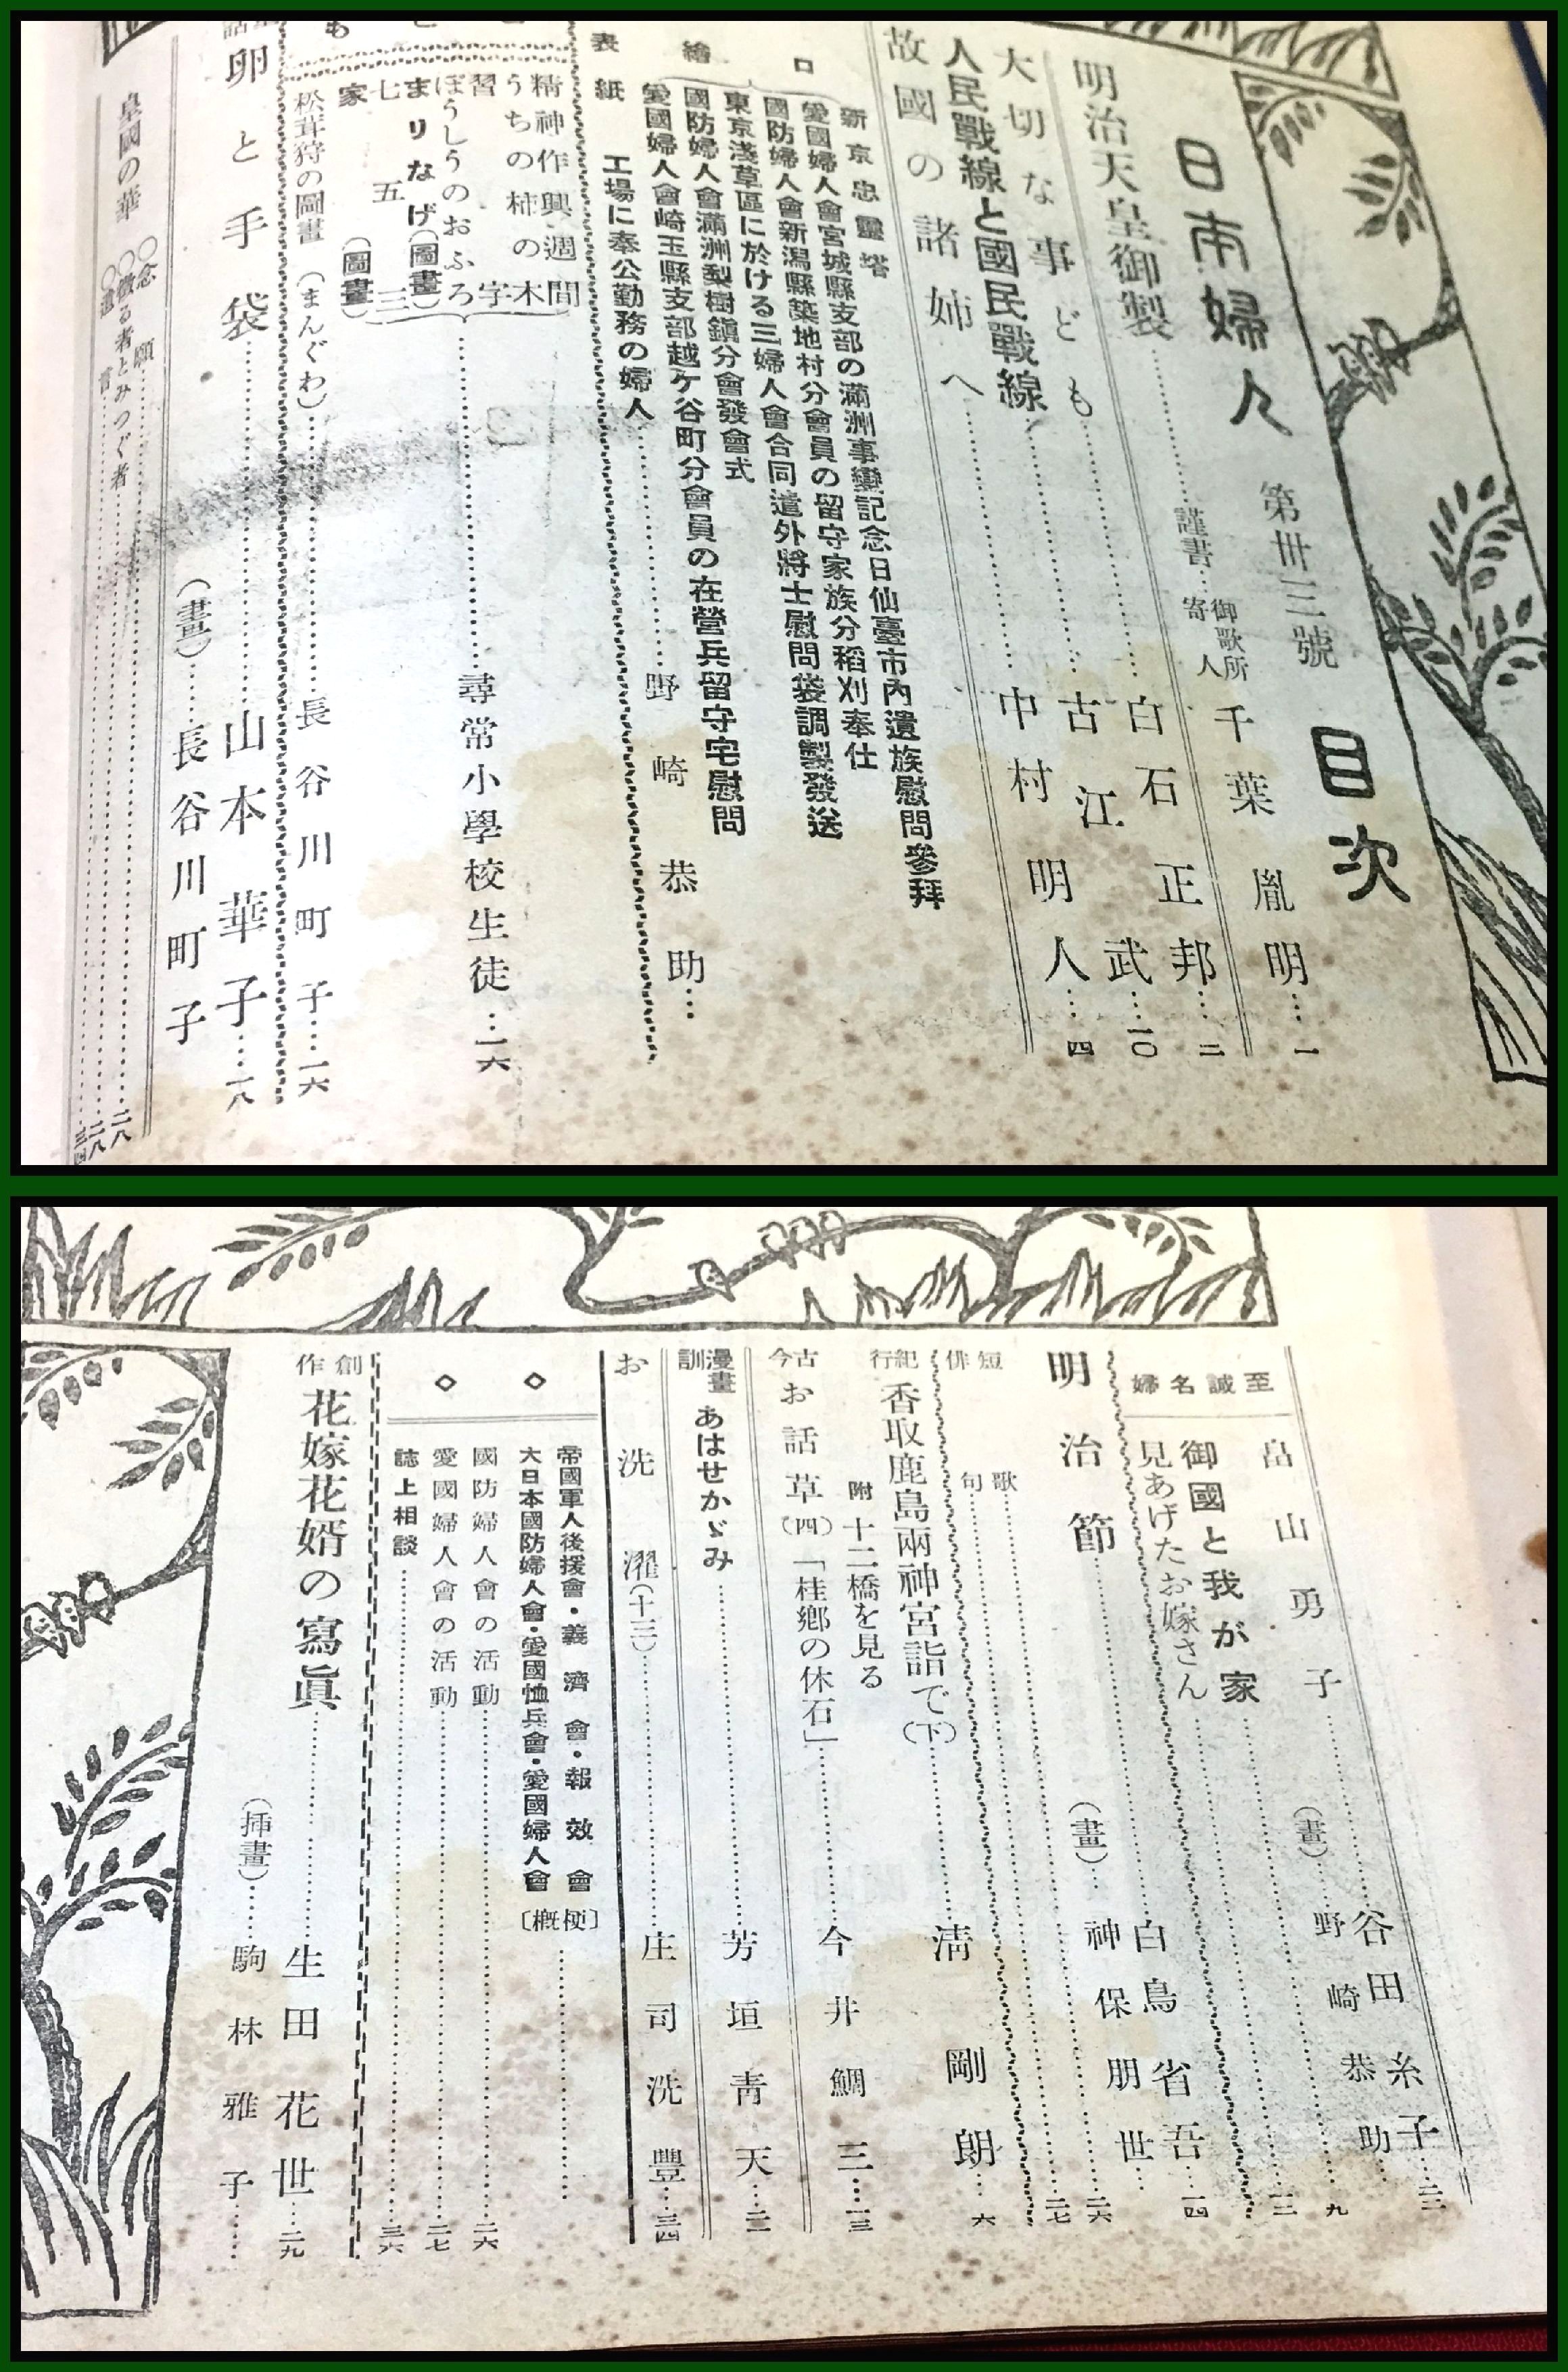 日本婦人 第卅三號 目次
明治天皇御製 謹書 御歌所寄人 千葉胤明 一
大切な事ども 白石正邦 二
人民戰線と國民戰線 古江武 一〇
故國の諸姉へ 中村明人 四
口繪
新京忠靈塔
愛國婦人會宮城縣支部の滿洲事變記念日仙臺市內遺族慰問參拜
國防婦人會新潟縣築地村分會員の留守家族分稻刈奉仕
東京淺草區に於ける三婦人會合同遣外將士慰問袋調製發送
國防婦人會滿洲梨樹鎭分會發會式
愛國婦人會崎玉縣支部越ケ谷町分會員の在營兵留守宅慰問
表紙 工場に奉公勤務の婦人 野崎恭助
精神作興週間
うちの柿の木
習字
ぼうしうのおふろ
まりなげ(圖畫)
七五三
家(圖畫)
尋常小學校生徒 一六
松茸狩の圖畫(まんぐわ) 長谷川町子 一六
卵と手袋 山本華子 一八
(畫) 長谷川町子
皇國の華
〇念願 二八
〇徵る者とみつぐ者 二八
〇遺言 三四
至誠名婦
畠山勇子 谷田糸子 二二
(畫) 野崎恭助 九
御國と我が家 二二
見あげたお嫁さん
明治節 白鳥省吾 一四
(畫) 神保朋世
短歌 二六
俳句 二七
紀行 香取鹿島兩神宮詣で(下) 淸剛朗 六
附 十二橋を見る
古今 お話草(四)「桂鄕の休石」 今井鯛三 一三
漫畫訓 あはせかゞみ 芳垣靑天 二二
お洗濯(十三) 庄司洗豐 三四
◇ ◇
帝國軍人後援會・義濟會・報效會
大日本國防婦人會・愛國恤兵會・愛國婦人會
〔梗概〕
國防婦人會の活動 二六
愛國婦人會の活動 二七
誌上相談 三六
創作 花嫁花婿の寫眞 生田花世 二九
(挿畫) 駒林雅子